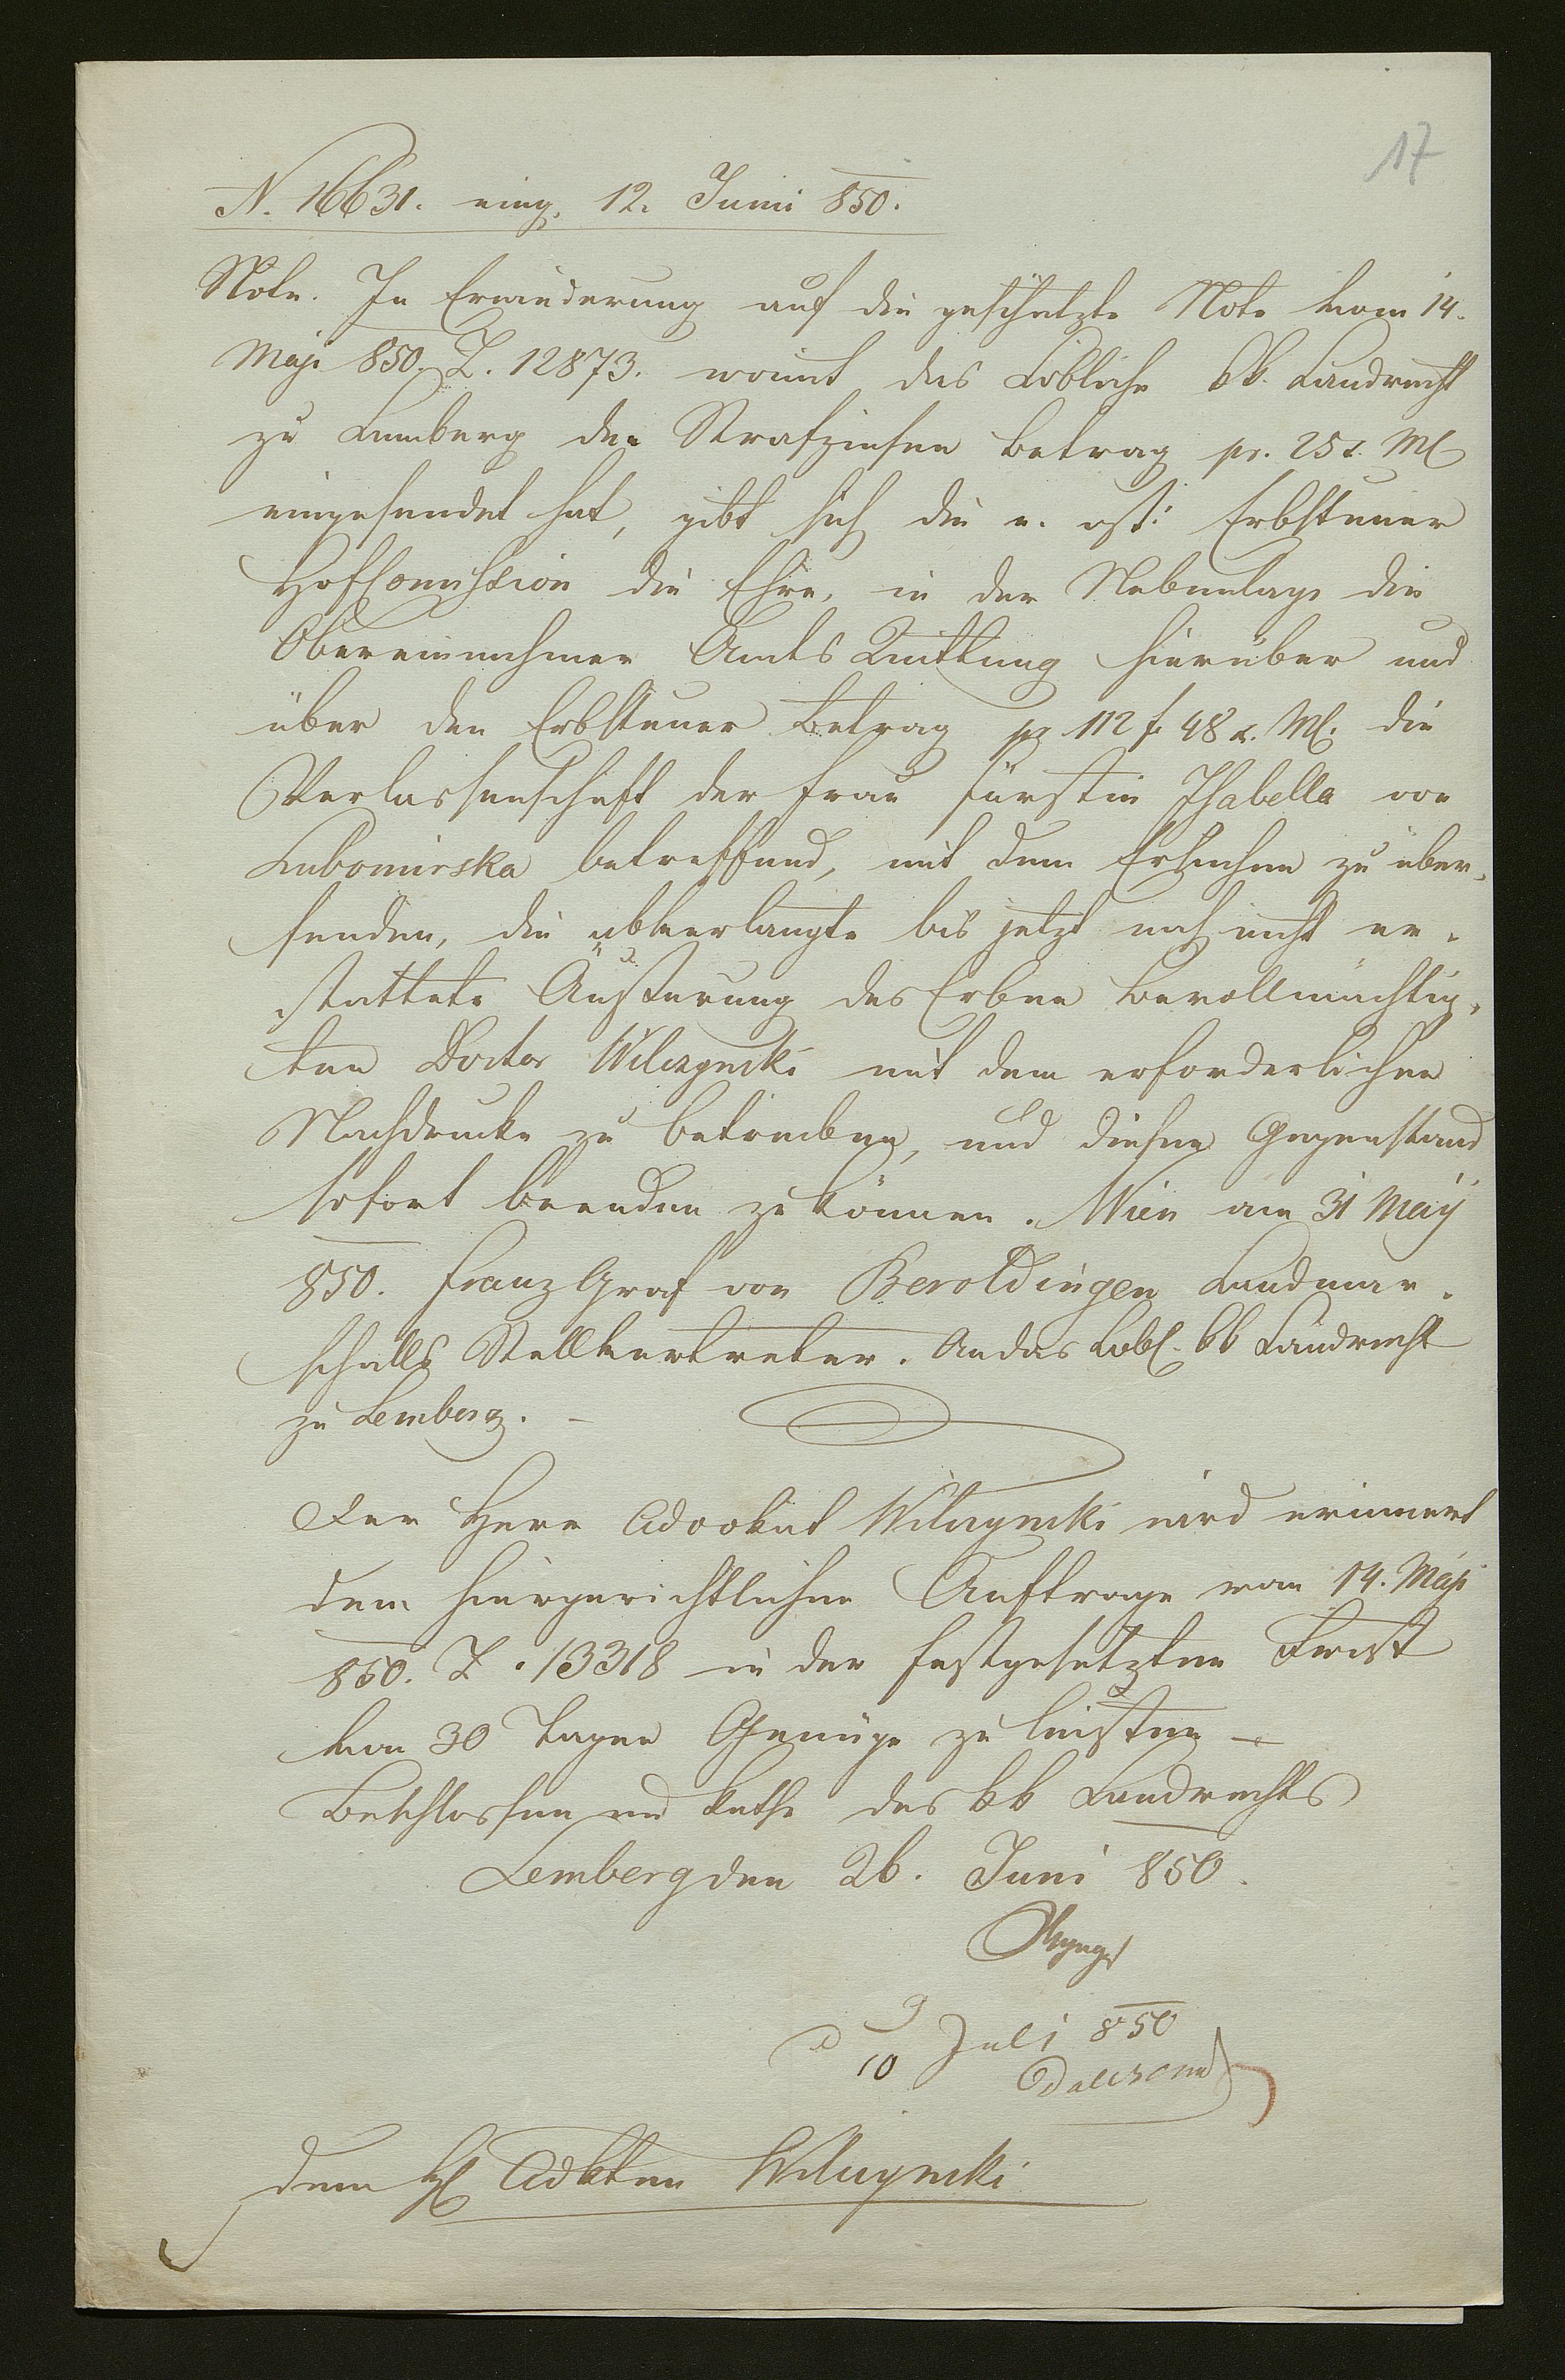 17
N. 16631. eing. 12. Juni 850.
Note. In Erwiederung auf die geschätzte Note vom 14.
Maji 850. Z. 12873. womit das Löbliche kk. Landrecht
zu Lemberg den Strafzinsen Betrag pr. 25 x. MC
eingesendet hat, gibt sich die n. öst: Erbsteuer
Hofcommission die Ehre, in der Nebenlage die
Obereinnehmer Amts Quittung hierüber und
über den Erbsteuer Betrag pr 112 f 48 x. MC. die
Verlassenschaft der Frau Fürstin Isabella von
Lubomirska betreffend, mit dem Ersuchen zu über-
senden, die abverlangte bis jetzt noch nicht er-
stattete Äußerung des Erben Bevollmächtig-
ten Doctor Wilczynski mit dem erforderlichen
Nachdrucke zu betreiben, und diesen Gegenstand
sofort beenden zu können. Wien am 31 May
850. Franz Graf von Beroldingen Landmar-
schalls Stellvertreter. An das Löbl. kk Landrecht
zu Lemberg. –
Der Herr Advokat Wilczynski wird erinnert
dem hiergerichtlichen Auftrage vom 14. Maji
850. Z. 13318 in der festgesetzten Frist
von 30 Tagen Genüge zu leisten –
Beschlossen im Rathe des kk Landrechts
Lemberg den 26. Juni 850.
9
10 Juli 850
dem H Adkten Wilczynski